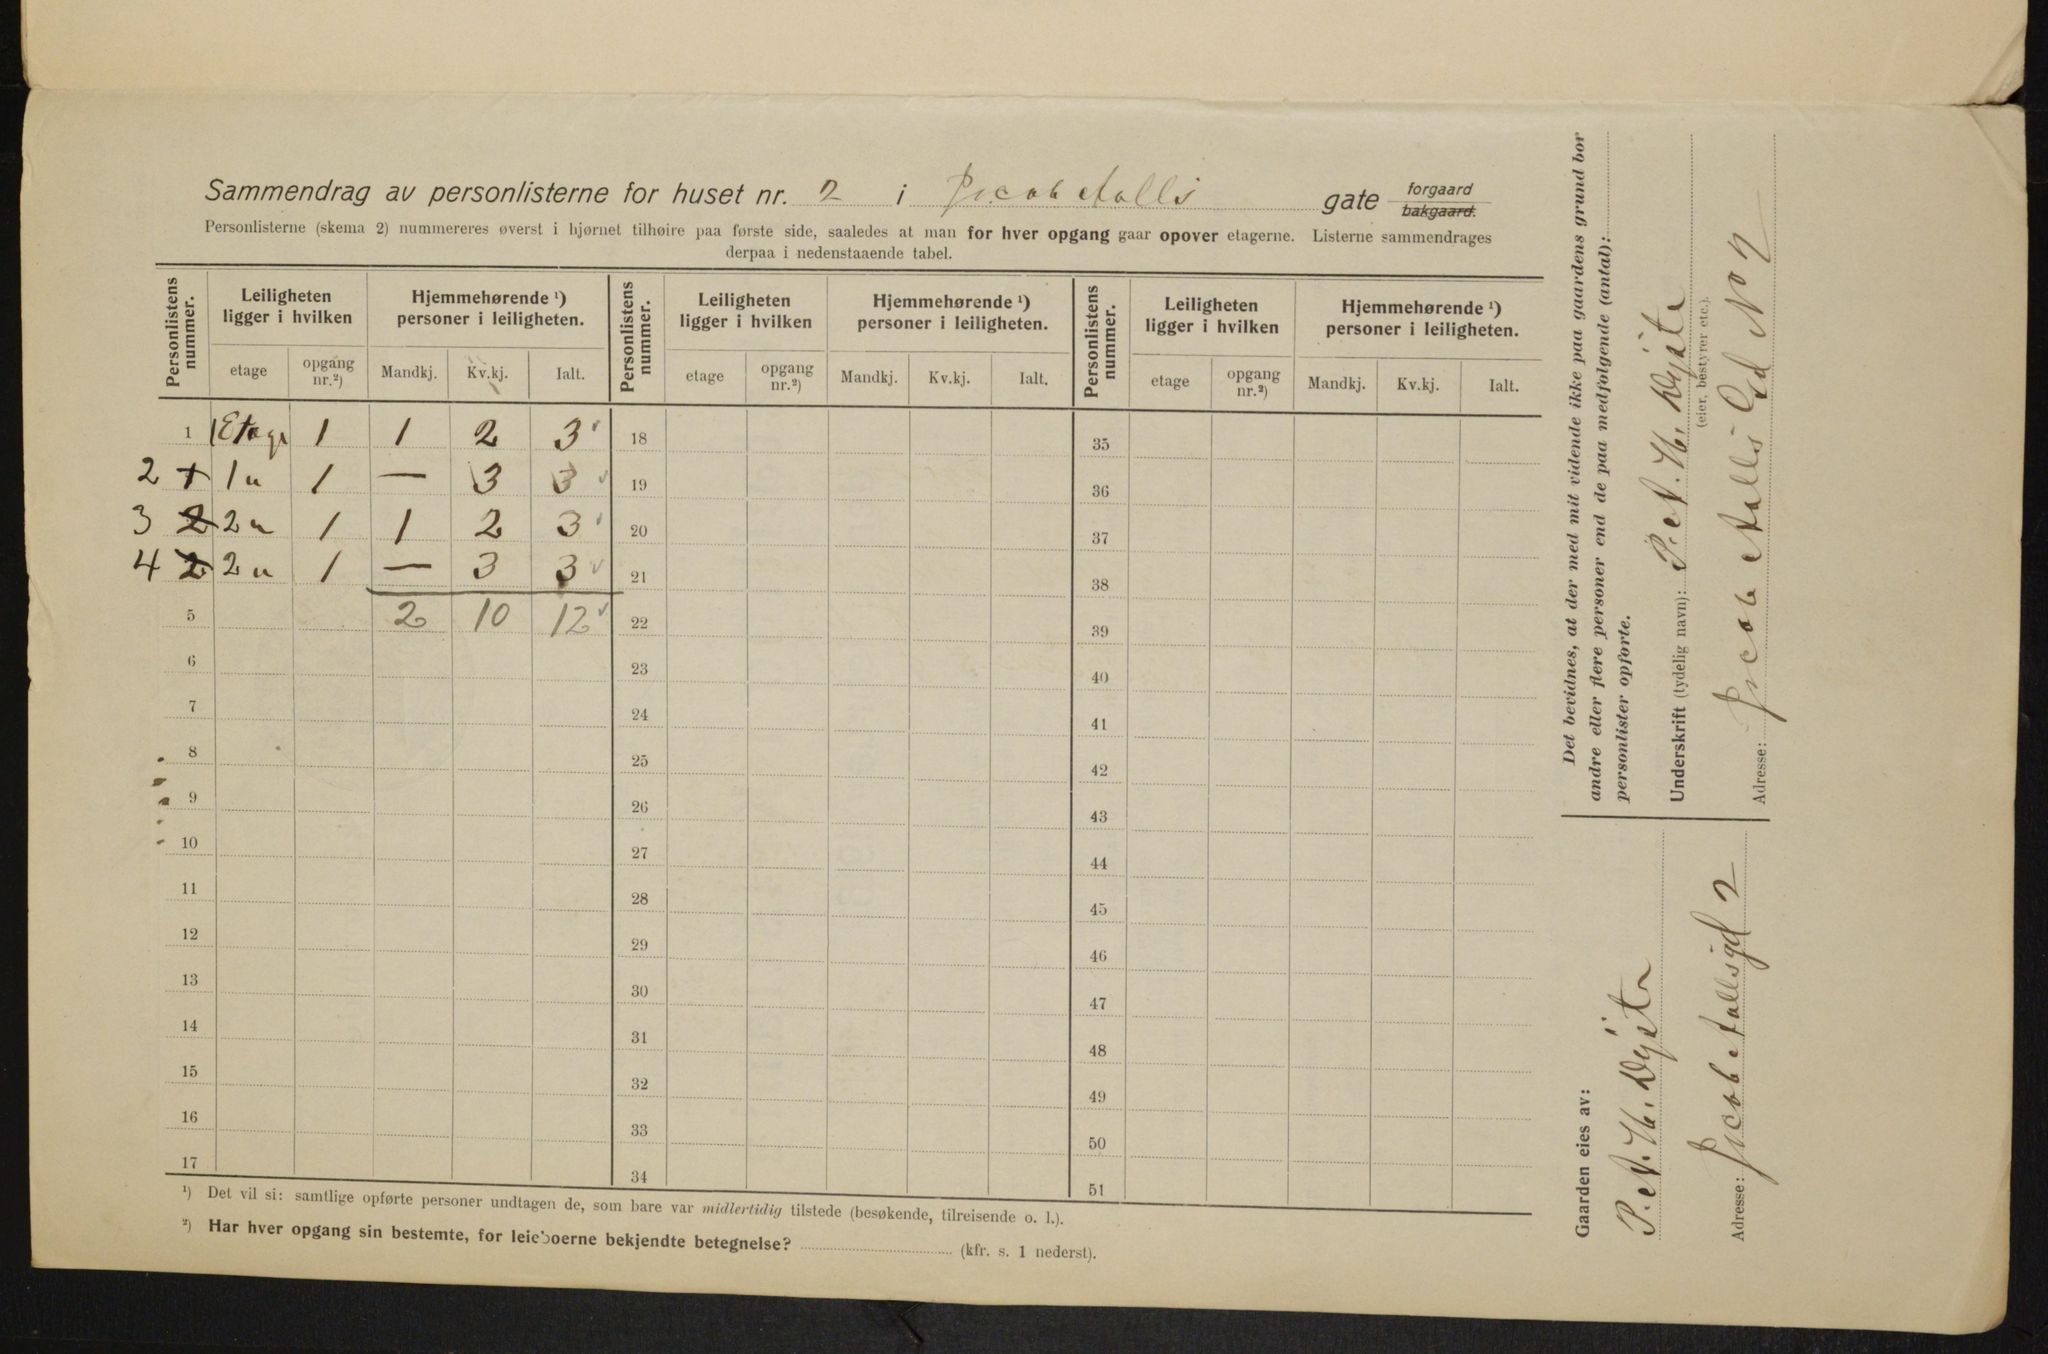 Sammendrag av personlisterne for huset nr. 2 i Jacob Aalls gate forgaard bakgaard.
Personlisterne (skema 2) nummereres øverst i hjørnet tilhøire paa første side, saaledes at man for hver opgang gaar opover etagerne. Listerne sammendrages
derpaa i nedenstaaende tabel.
Personlistens nummer. Leiligheten ligger i hvilken Hjemmehørende ¹) personer i leiligheten. Personlistens nummer. Leiligheten ligger i hvilken Hjemmehørende ¹) personer i leiligheten. Personlistens nummer. Leiligheten ligger i hvilken Hjemmehørende ¹) personer i leiligheten.
etage opgang nr.²) Mandkj. Kv.kj. Ialt. etage opgang nr.²) Mandkj. Kv.kj. Ialt. etage opgang nr.²) Mandkj. Kv.kj. Ialt.
1 1 Etage 1 1 2 3 18 35
2 1 1 " 1 — 3 3 19 36
3 2 2 " 1 1 2 3 20 37
4 2 2 " 1 — 3 3 21 38
5 2 10 12 22 39
6 23 40
7 24 41
8 25 42
9 26 43
10 27 44
11 28 45
12 29 46
13 30 47
14 31 48
15 32 49
16 33 50
17 34 51
¹) Det vil si: samtlige opførte personer undtagen de, som bare var midlertidig tilstede (besøkende, tilreisende o. l.).
²) Har hver opgang sin bestemte, for leieboerne bekjendte betegnelse? (kfr. s. 1 nederst).
Det bevidnes, at der med mit vidende ikke paa gaardens grund bor
andre eller flere personer end de paa medfølgende (antal):
personlister opførte.
Underskrift (tydelig navn): P. A. H. Dyste
(eier, bestyrer etc.).
Adresse: Jacob Aalls Gd No 2
Gaarden eies av:
P. A. H. Dyste
Adresse: Jacob Aallsgd 2